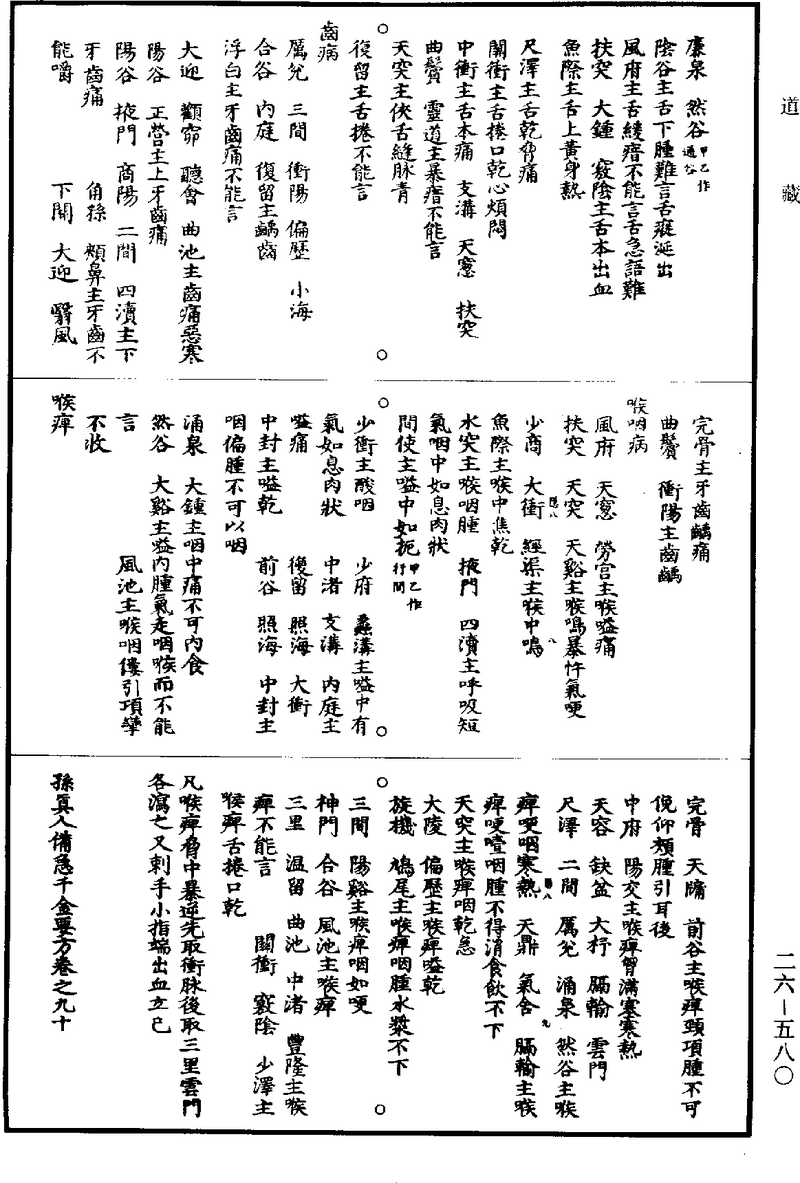 道藏
廉泉　然谷甲乙作通谷
陰谷主舌下腫難言舌瘲涎出
風府主舌緩瘖不能言舌急語難
扶突　大鍾　竅陰主舌本出血
魚際主舌上黃身熱
尺澤主舌乾脅痛
關衝主舌捲口乾心煩悶
中衝主舌本痛　支溝　天窻　扶突
曲鬢　靈道主暴瘖不能言
天突主俠舌縫脉青
復留主舌捲不能言
齒病
厲兌　三間　衝陽　偏歷　小海
合谷　內庭　復留主齲齒
浮白主牙齒痛不能言
大迎　顴窌　聽會　曲池主齒痛惡寒
陽谷　正營主上牙齒痛
陽谷　掖門　商陽　二間　四瀆主下
牙齒痛　　角孫　頰鼻主牙齒不
能嚼　　下關　大迎　翳風
完骨主牙齒齲痛
曲鬢　衝陽主齒齲
喉咽病
風府　天窻　勞宮主喉嗌痛
扶突　天突　天谿主喉鳴暴忤氣哽
少商　大衝　經渠主喉中鳴
魚際主喉中焦乾
水突主喉咽腫　掖門　四瀆主呼吸短
氣咽中如息肉狀
間使主嗌中如扼甲乙作行間
少衝主酸咽　少府　蠡溝主嗌中有
氣如息肉狀　中渚　支溝　內庭主
嗌痛　　復留　照海　大衝
中封主嗌乾　前谷　照海　中封主
咽偏腫不可以咽
涌泉　大鍾主咽中痛不可內食
然谷　大谿主嗌內腫氣走咽喉而不能
言　　風池主喉咽僂引項攣
不收
喉痺
完骨　天牖　前谷主喉痺頸項腫不可
俛仰頰腫引耳後
中府　陽交主喉痺胷滿塞寒熱
天容　缺盆　大杼　膈輸　雲門
尺澤　二間　厲兌　涌泉　然谷主喉
痺哽咽寒熱　天鼎　氣舍　膈輸主喉
痺哽噎咽腫不得消食飲不下
天突主喉痺咽乾急
大陵　偏歷主喉痺嗌乾
旋機　鳩尾主喉痺咽腫水漿不下
三間　陽谿主喉痺咽如哽
神門　合谷　風池主喉痺
三里　温留　曲池　中渚　豐隆主喉
痺不能言　　關衝　竅陰　少澤主
喉痺舌捲口乾
凡喉痺脅中暴逆先取衝脉後取三里雲門
各瀉之又刺手小指端出血立已
孫真人備急千金要方卷之九十
二六—五八〇